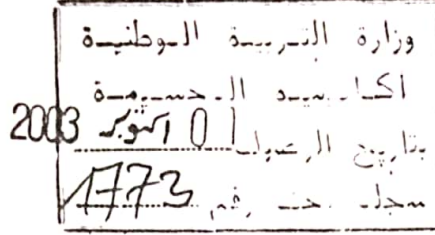 وزارة التربية الوطنية
اكاديمية الحسيمة
بتاريخ 01 اكتوبر 2003
سجل تحت رقم 1773